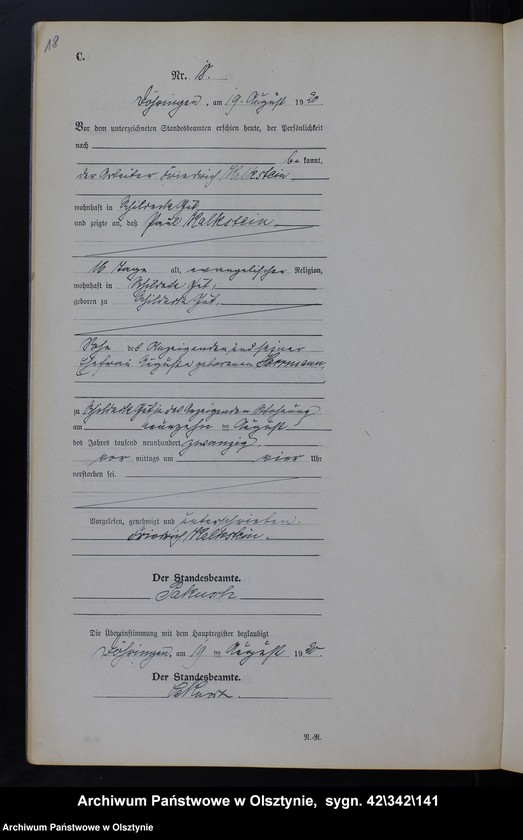 18
C.
Nr. 18.
Döhringen, am 19. August 1920
Vor dem unterzeichneten Standesbeamten erschien heute, der Persönlichkeit
nach
be kannt,
der Arbeiter Friedrich Kalkstein
wohnhaft in Schildeck Gut
und zeigte an, daß Paul Kalkstein
16 Tage alt, evangelischer Religion,
wohnhaft in Schildeck Gut,
geboren zu Schildeck Gut,
Sohn des Anzeigenden und seiner
Ehefrau Auguste geborenen Herrmann,
zu Schildeck Gut in des Anzeigenden Wohnung
am neunzehn ten August
des Jahres tausend neunhundert zwanzig
vor mittags um vier Uhr
verstorben sei.
Vorgelesen, genehmigt und unterschrieben.
Friedrich Kalkstein.
Der Standesbeamte.
Die Übereinstimmung mit dem Hauptregister beglaubigt
Döhringen, am 19 ten August 1920.
Der Standesbeamte.
R.-R.
Archiwum Państwowe w Olsztynie, sygn. 42\342\141
Archiwum Państwowe w Olsztynie